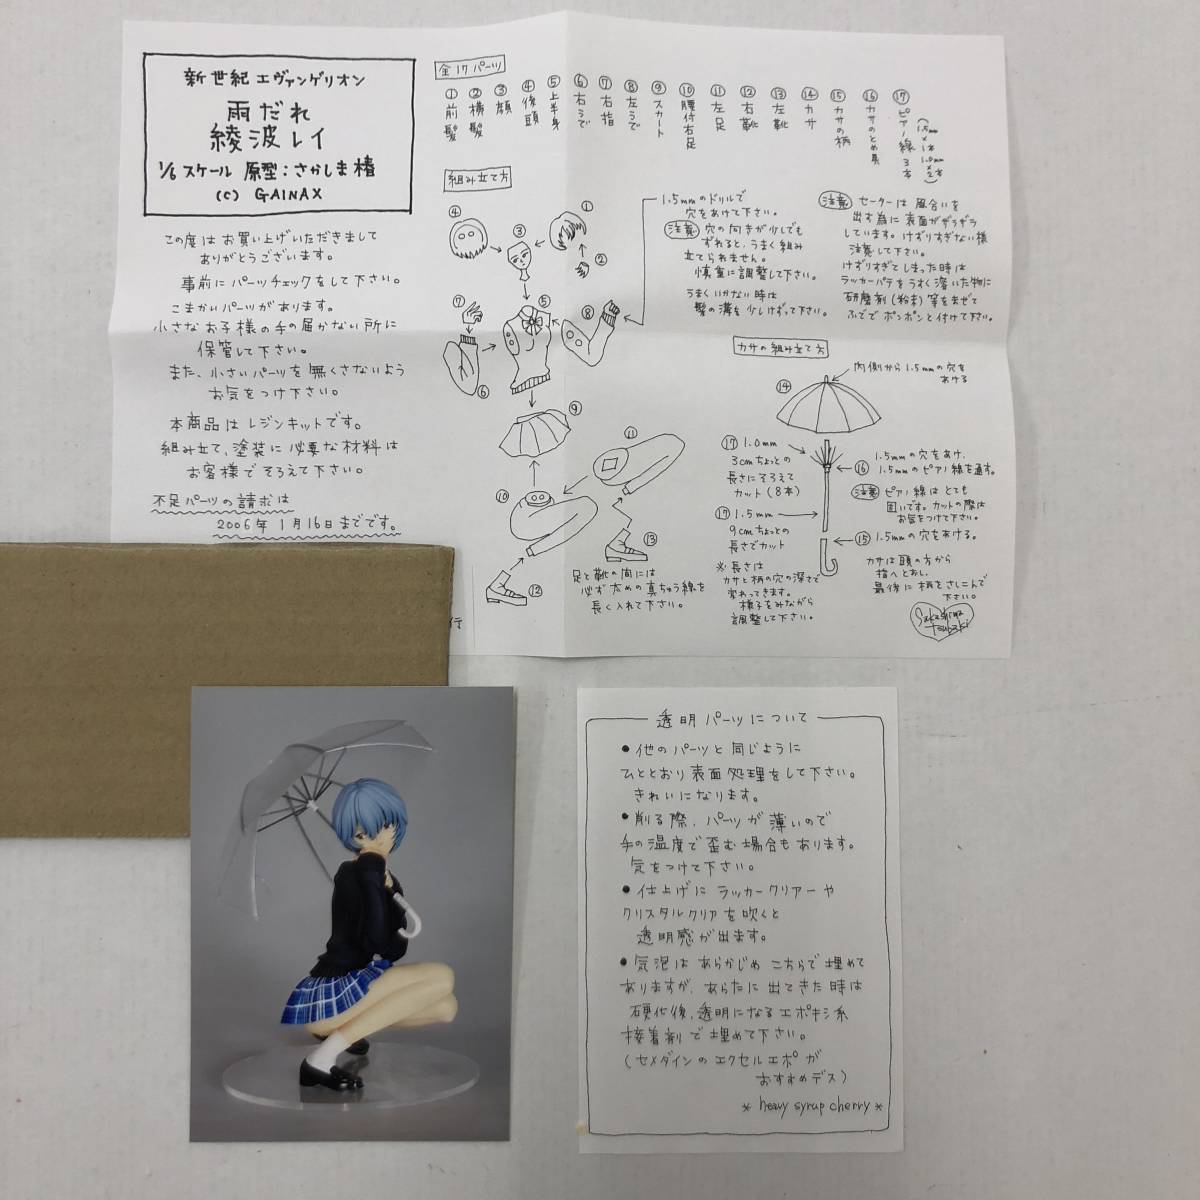 新世紀エヴァンゲリオン
雨だれ
綾波レイ
1/6スケール 原型:さかしま椿
(C) GAINAX
この度はお買い上げいただきまして
ありがとうございます。
事前にパーツチェックをして下さい。
こまかいパーツがあります。
小さなお子様の手の届かない所に
保管して下さい。
また、小さいパーツを無くさないよう
お気をつけ下さい。
本商品はレジンキットです。
組み立て、塗装に必要な材料は
お客様でそろえて下さい。
不足パーツの請求は
2006年1月16日までです。
行
全17パーツ
①前髪
②横髪
③顔
④後頭
⑤上半身
⑥右うで
⑦右指
⑧左うで
⑨スカート
⑩腰付右足
⑪左足
⑫右靴
⑬左靴
⑭カサ
⑮カサの柄
⑯カサのとめ具
⑰ピアノ線3本
(1.5mm×1本
1.0mm×2本)
組み立て方
④
③
①
②
⑦
⑤
⑧
⑥
⑨
⑪
⑩
⑬
⑫
1.5mmのドリルで
穴をあけて下さい。
注意 穴の向きが少しでも
ずれると、うまく組み
立てられません。
慎重に調整して下さい。
うまくいかない時は
髪の溝を少しけずって下さい。
足と靴の間には
必ず太めの真ちゅう線を
長く入れて下さい。
注意 セーターは風合いを
出す為に表面がザラザラ
しています。けずりすぎない様
注意して下さい。
けずりすぎてしまった時は
ラッカーパテをうすく溶いた物に
研磨剤(粉末)等をまぜて
ふででポンポンと付けて下さい。
カサの組み立て方
⑭
内側から1.5mmの穴を
あける
⑰1.0mm
3cmちょっとの
長さにそろえて
カット(8本)
⑰1.5mm
9cmちょっとの
長さでカット
※長さは
カサと柄の穴の深さで
変わってきます。
様子をみながら
調整して下さい。
1.5mmの穴をあけ、
⑯1.5mmのピアノ線を通す。
注意 ピアノ線はとても
固いです。カットの際は
お気をつけて下さい。
⑮1.5mmの穴をあける。
カサは頭の方から
指へとおし、
最後に柄をさしこんで
下さい。
Sakashima
tsubaki
透明パーツについて
●他のパーツと同じように
ひととおり表面処理をして下さい。
きれいになります。
●削る際、パーツが薄いので
手の温度で歪む場合もあります。
気をつけて下さい。
●仕上げにラッカークリアーや
クリスタルクリアを吹くと
透明感が出ます。
●気泡はあらかじめこちらで埋めて
ありますが、あらたに出てきた時は
硬化後、透明になるエポキシ系
接着剤で埋めて下さい。
(セメダインのエクセルエポが
おすすめデス)
* heavy syrup cherry *